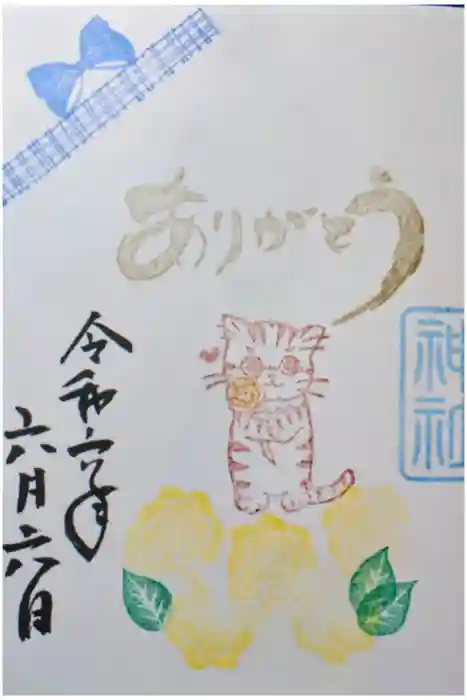 ありがとう
令和六年
六月六日
神社